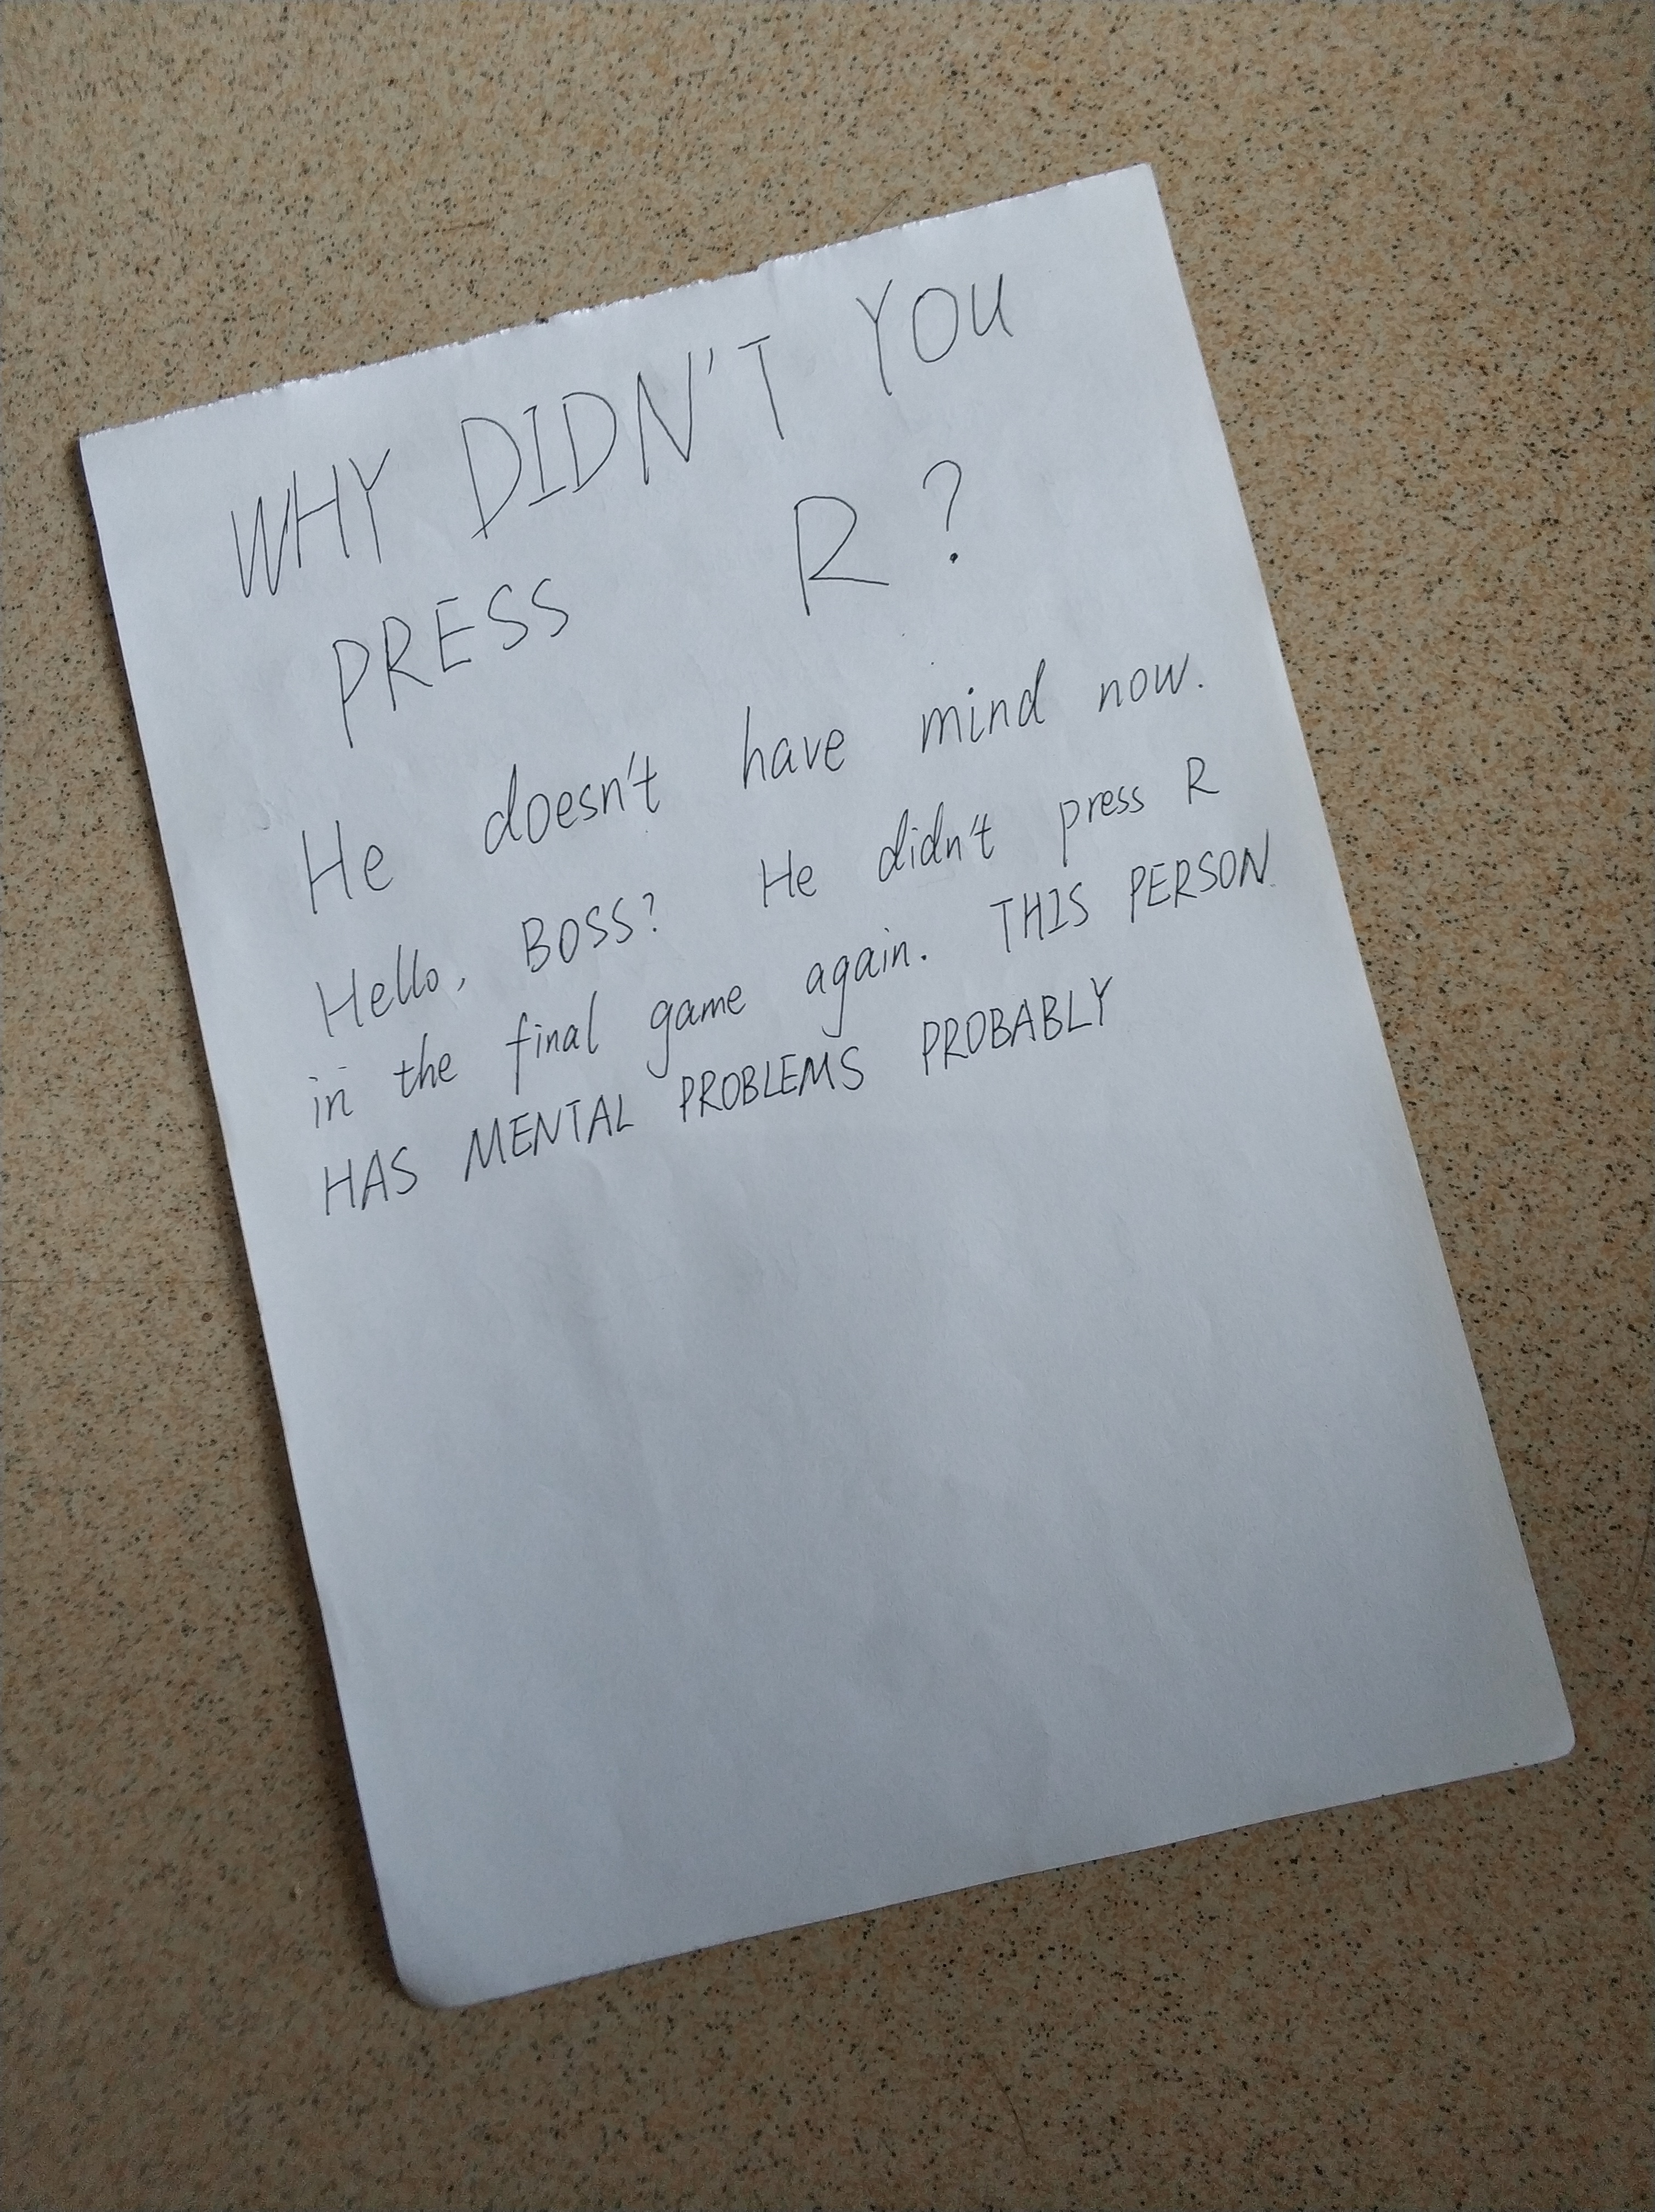 WHY DIDN'T YOU
PRESS R ?
He doesn't have mind now.
Hello, BOSS? He didn't press R
in the final game again. THIS PERSON
HAS MENTAL PROBLEMS PROBABLY